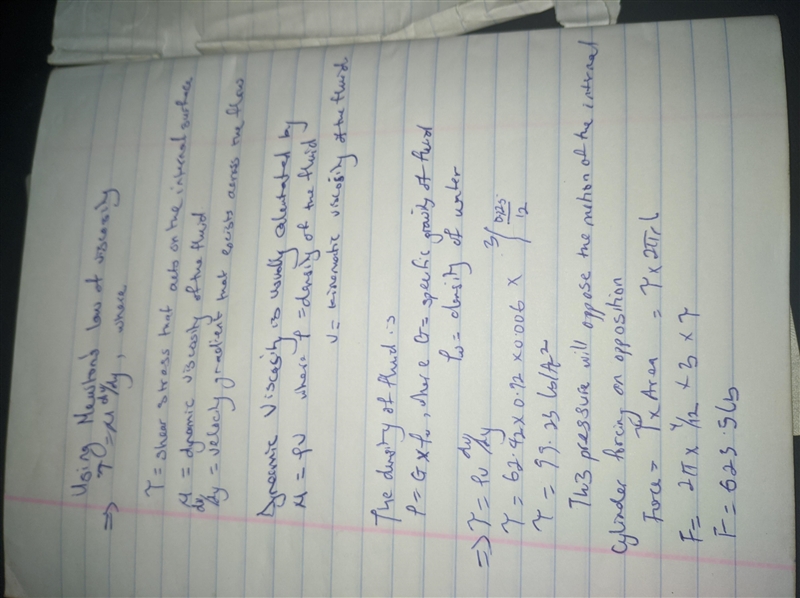 Using Newtons law of viscosity
⇒ τ = μ du/dy, where
τ = shear stress that acts on the internal surface
μ = dynamic viscosity of the fluid
du/dy = velocity gradient that exists across the flow
Dynamic viscosity is usually calculated by
μ = ρν where ρ = density of the fluid
ν = kinematic viscosity of the fluid
The density of fluid is
ρ = G × ρw, where G = specific gravity of fluid
ρw = density of water
⇒ τ = ρν du/dy
τ = 62.42 × 0.92 × 0.006 × 3/
τ = 99.23 lb/ft²
This pressure will oppose the motion of the internal
cylinder forcing on opposition
Force = τ × Area = τ × 2πrL
F = 2π × 4/12 × 3 × τ
F = 623.5 lb